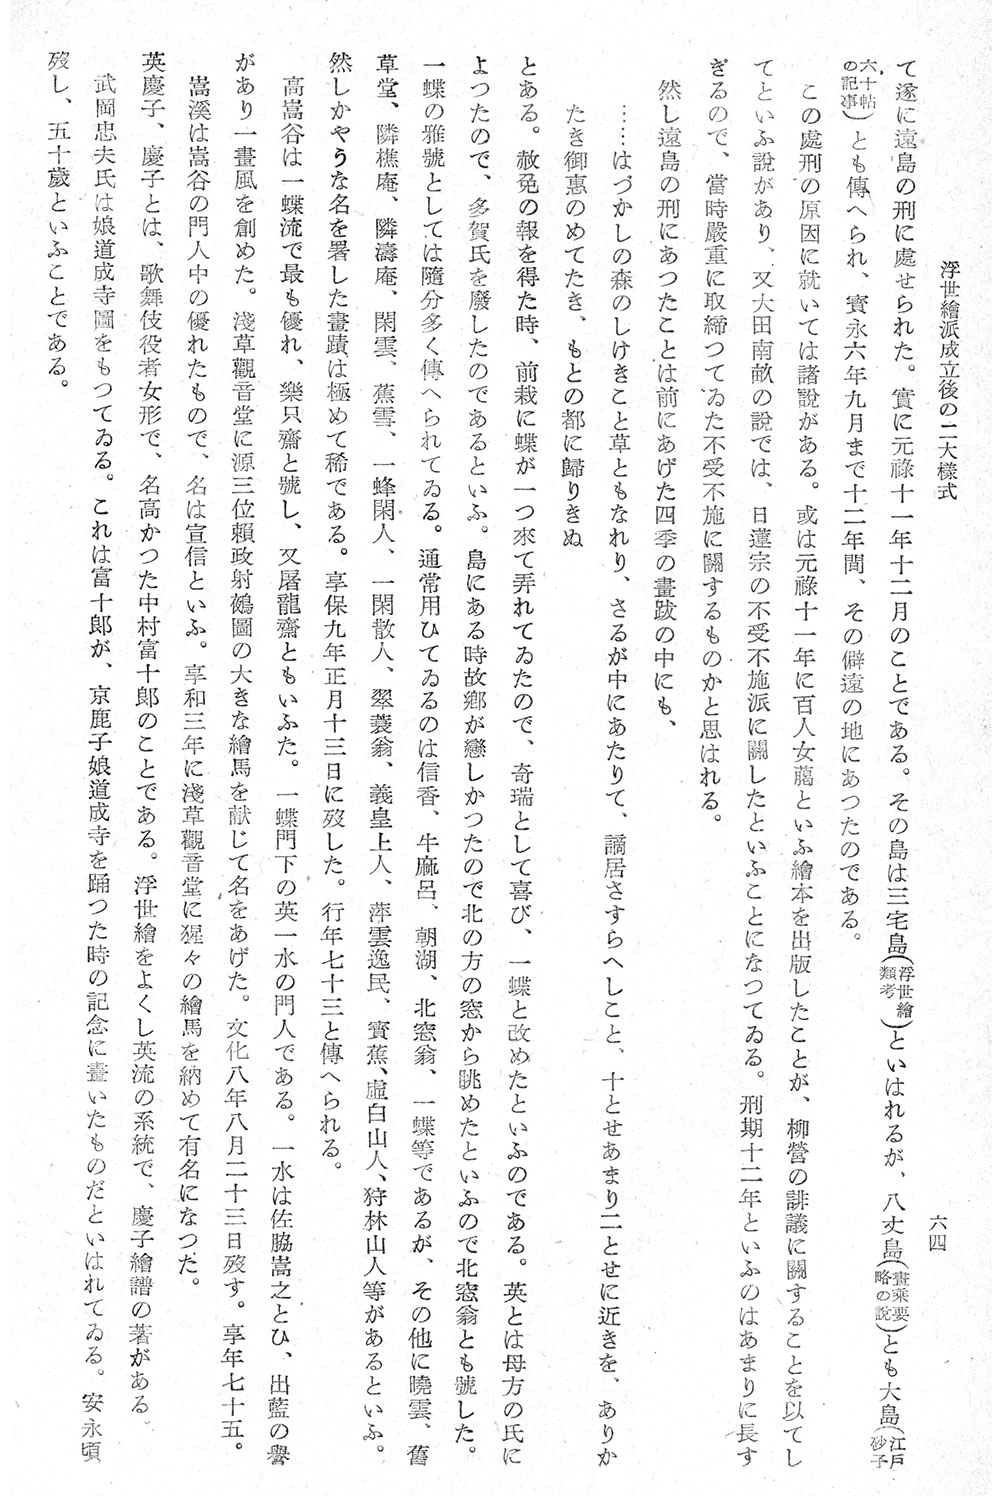 浮世繪派成立後の二大樣式
六四
て遂に遠島の刑に處せられた。實に元祿十一年十二月のことである。その島は三宅島(浮世繪類考)といはれるが、八丈島(畫乘要略の說)とも大島(江戶砂子
六十帖の記事)とも傳へられ、寳永六年九月まで十二年間、その僻遠の地にあつたのである。
この處刑の原因に就いては諸說がある。或は元祿十一年に百人女﨟といふ繪本を出版したことが、柳營の誹議に關することを以てし
てといふ說があり、又大田南畝の說では、日蓮宗の不受不施派に關したといふことになつてゐる。刑期十二年といふのはあまりに長す
ぎるので、當時嚴重に取締つてゐた不受不施に關するものかと思はれる。
然し遠島の刑にあつたことは前にあげた四季の畫跋の中にも、
……はづかしの森のしけきこと草ともなれり、さるが中にあたりて、謫居さすらへしこと、十とせあまり二とせに近きを、ありか
たき御惠のめてたき、もとの都に歸りきぬ
とある。赦免の報を得た時、前栽に蝶が一つ來て弄れてゐたので、奇瑞として喜び、一蝶と改めたといふのである。英とは母方の氏に
よつたので、多賀氏を廢したのであるといふ。島にある時故鄕が戀しかつたので北の方の窓から眺めたといふので北窓翁とも號した。
一蝶の雅號としては隨分多く傳へられてゐる。通常用ひてゐるのは信香、牛麻呂、朝湖、北窓翁、一蝶等であるが、その他に曉雲、舊
草堂、隣樵庵、隣濤庵、閑雲、蕉雪、一蜂閑人、一閑散人、翠蓑翁、義皇上人、萍雲逸民、寳蕉、虛白山人、狩林山人等があるといふ。
然しかやうな名を署した畫蹟は極めて稀である。享保九年正月十三日に歿した。行年七十三と傳へられる。
高嵩谷は一蝶流で最も優れ、樂只齋と號し、又屠龍齋ともいふた。一蝶門下の英一水の門人である。一水は佐脇嵩之とひ、出藍の譽
があり一畫風を創めた。淺草觀音堂に源三位賴政射鵺圖の大きな繪馬を献じて名をあげた。文化八年八月二十三日歿す。享年七十五。
嵩溪は嵩谷の門人中の優れたもので、名は宣信といふ。享和三年に淺草觀音堂に猩々の繪馬を納めて有名になつた。
英慶子、慶子とは、歌舞伎役者女形で、名高かつた中村富十郞のことである。浮世繪をよくし英流の系統で、慶子繪譜の著がある
武岡忠夫氏は娘道成寺圖をもつてゐる。これは富十郞が、京鹿子娘道成寺を踊つた時の記念に畫いたものだといはれてゐる。安永頃
歿し、五十歲といふことである。